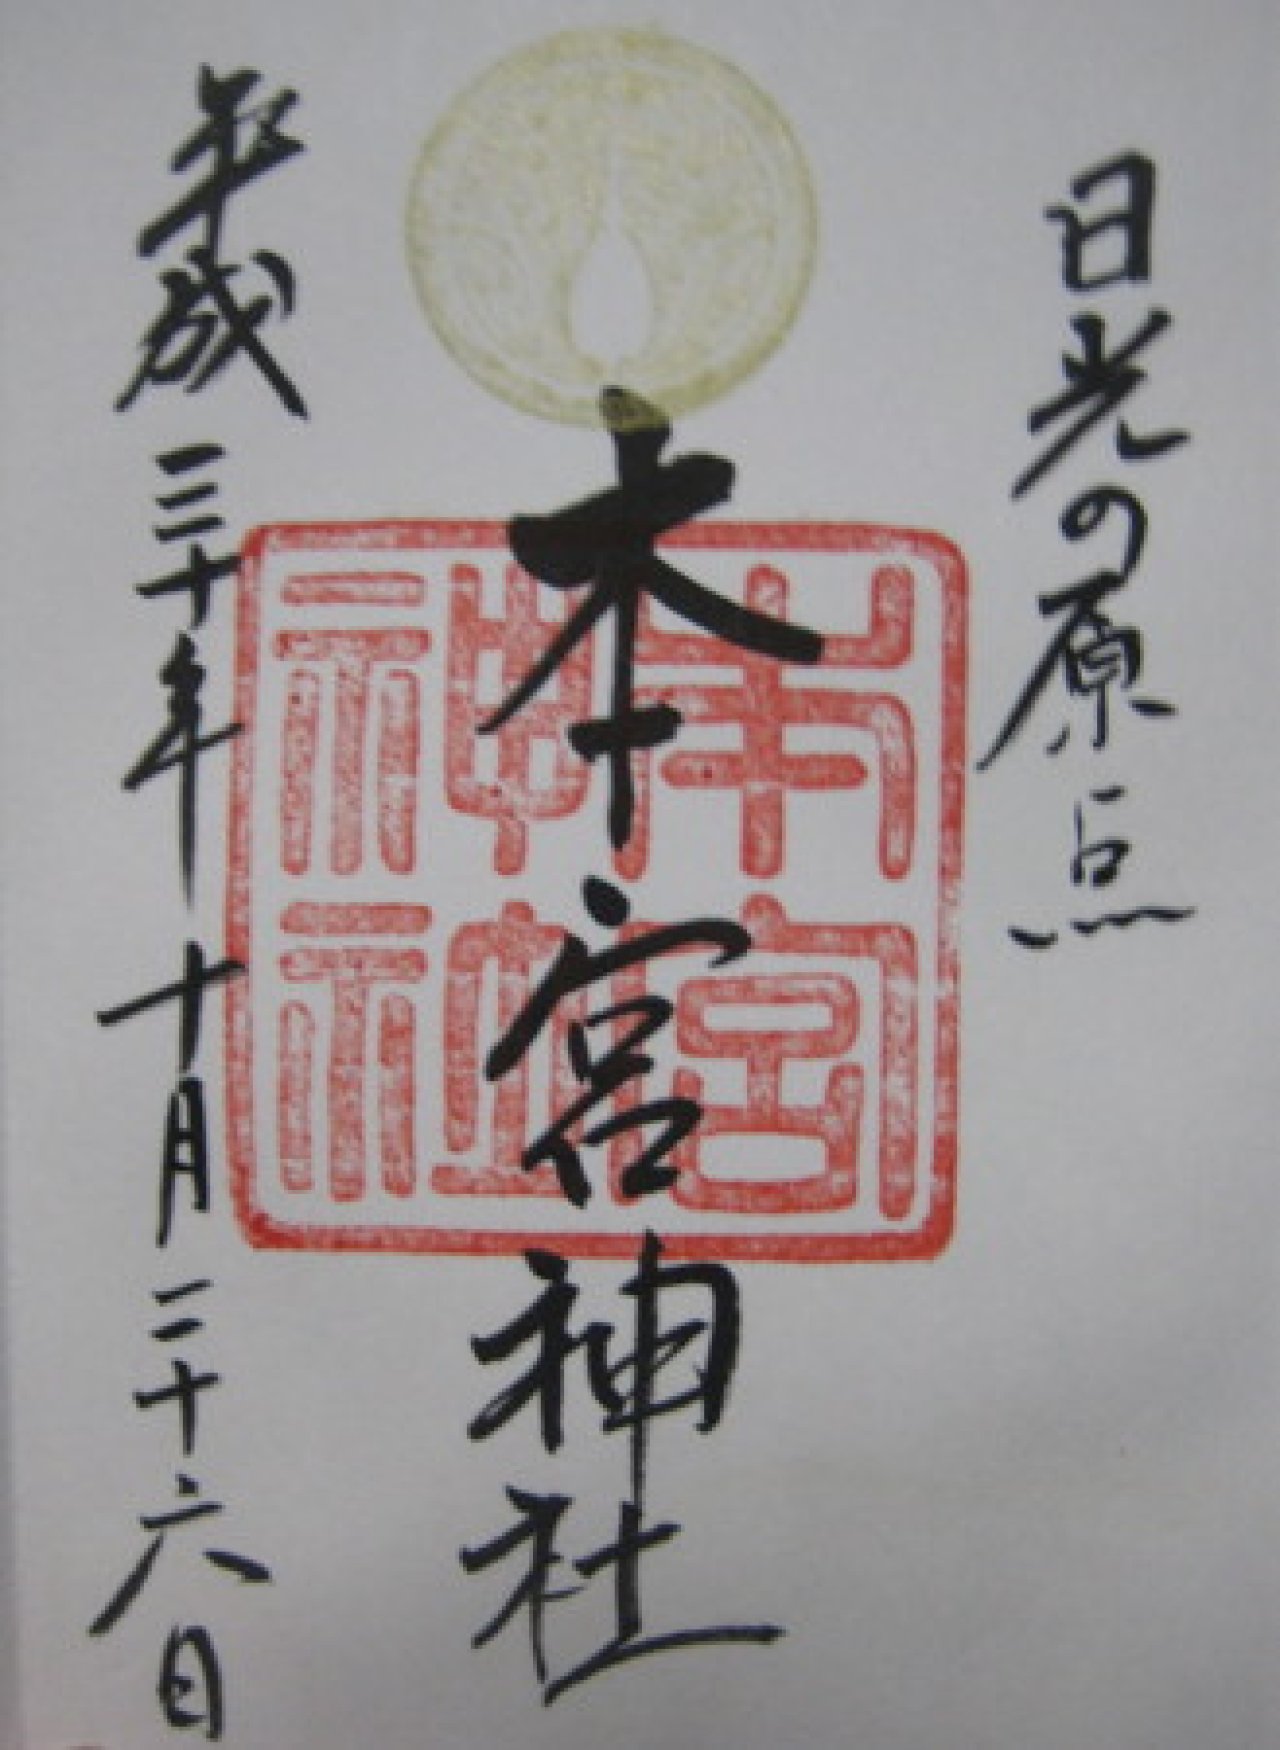 日光の原点
本宮神社
本宮神社
平成三十年十月二十六日